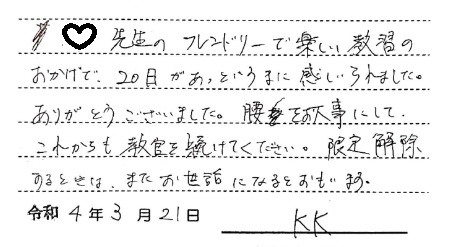 ♡ 先生の フレンドリーで楽しい教習の
おかげで、20日があっというまに感じられました。
ありがとうございました。腰をお大事にして、
これからも教官を続けてください。限定解除
するときは、またお世話になるとおもいます。
令和 4年 3月 21日 KK